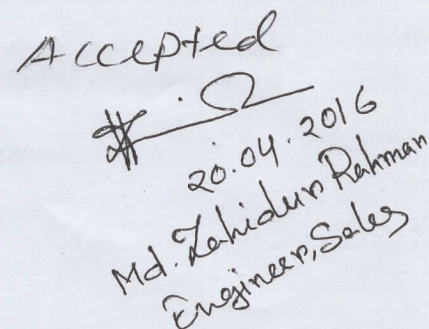 Accepted
20.04.2016
Md. Zahidur Rahman
Engineer, Sales